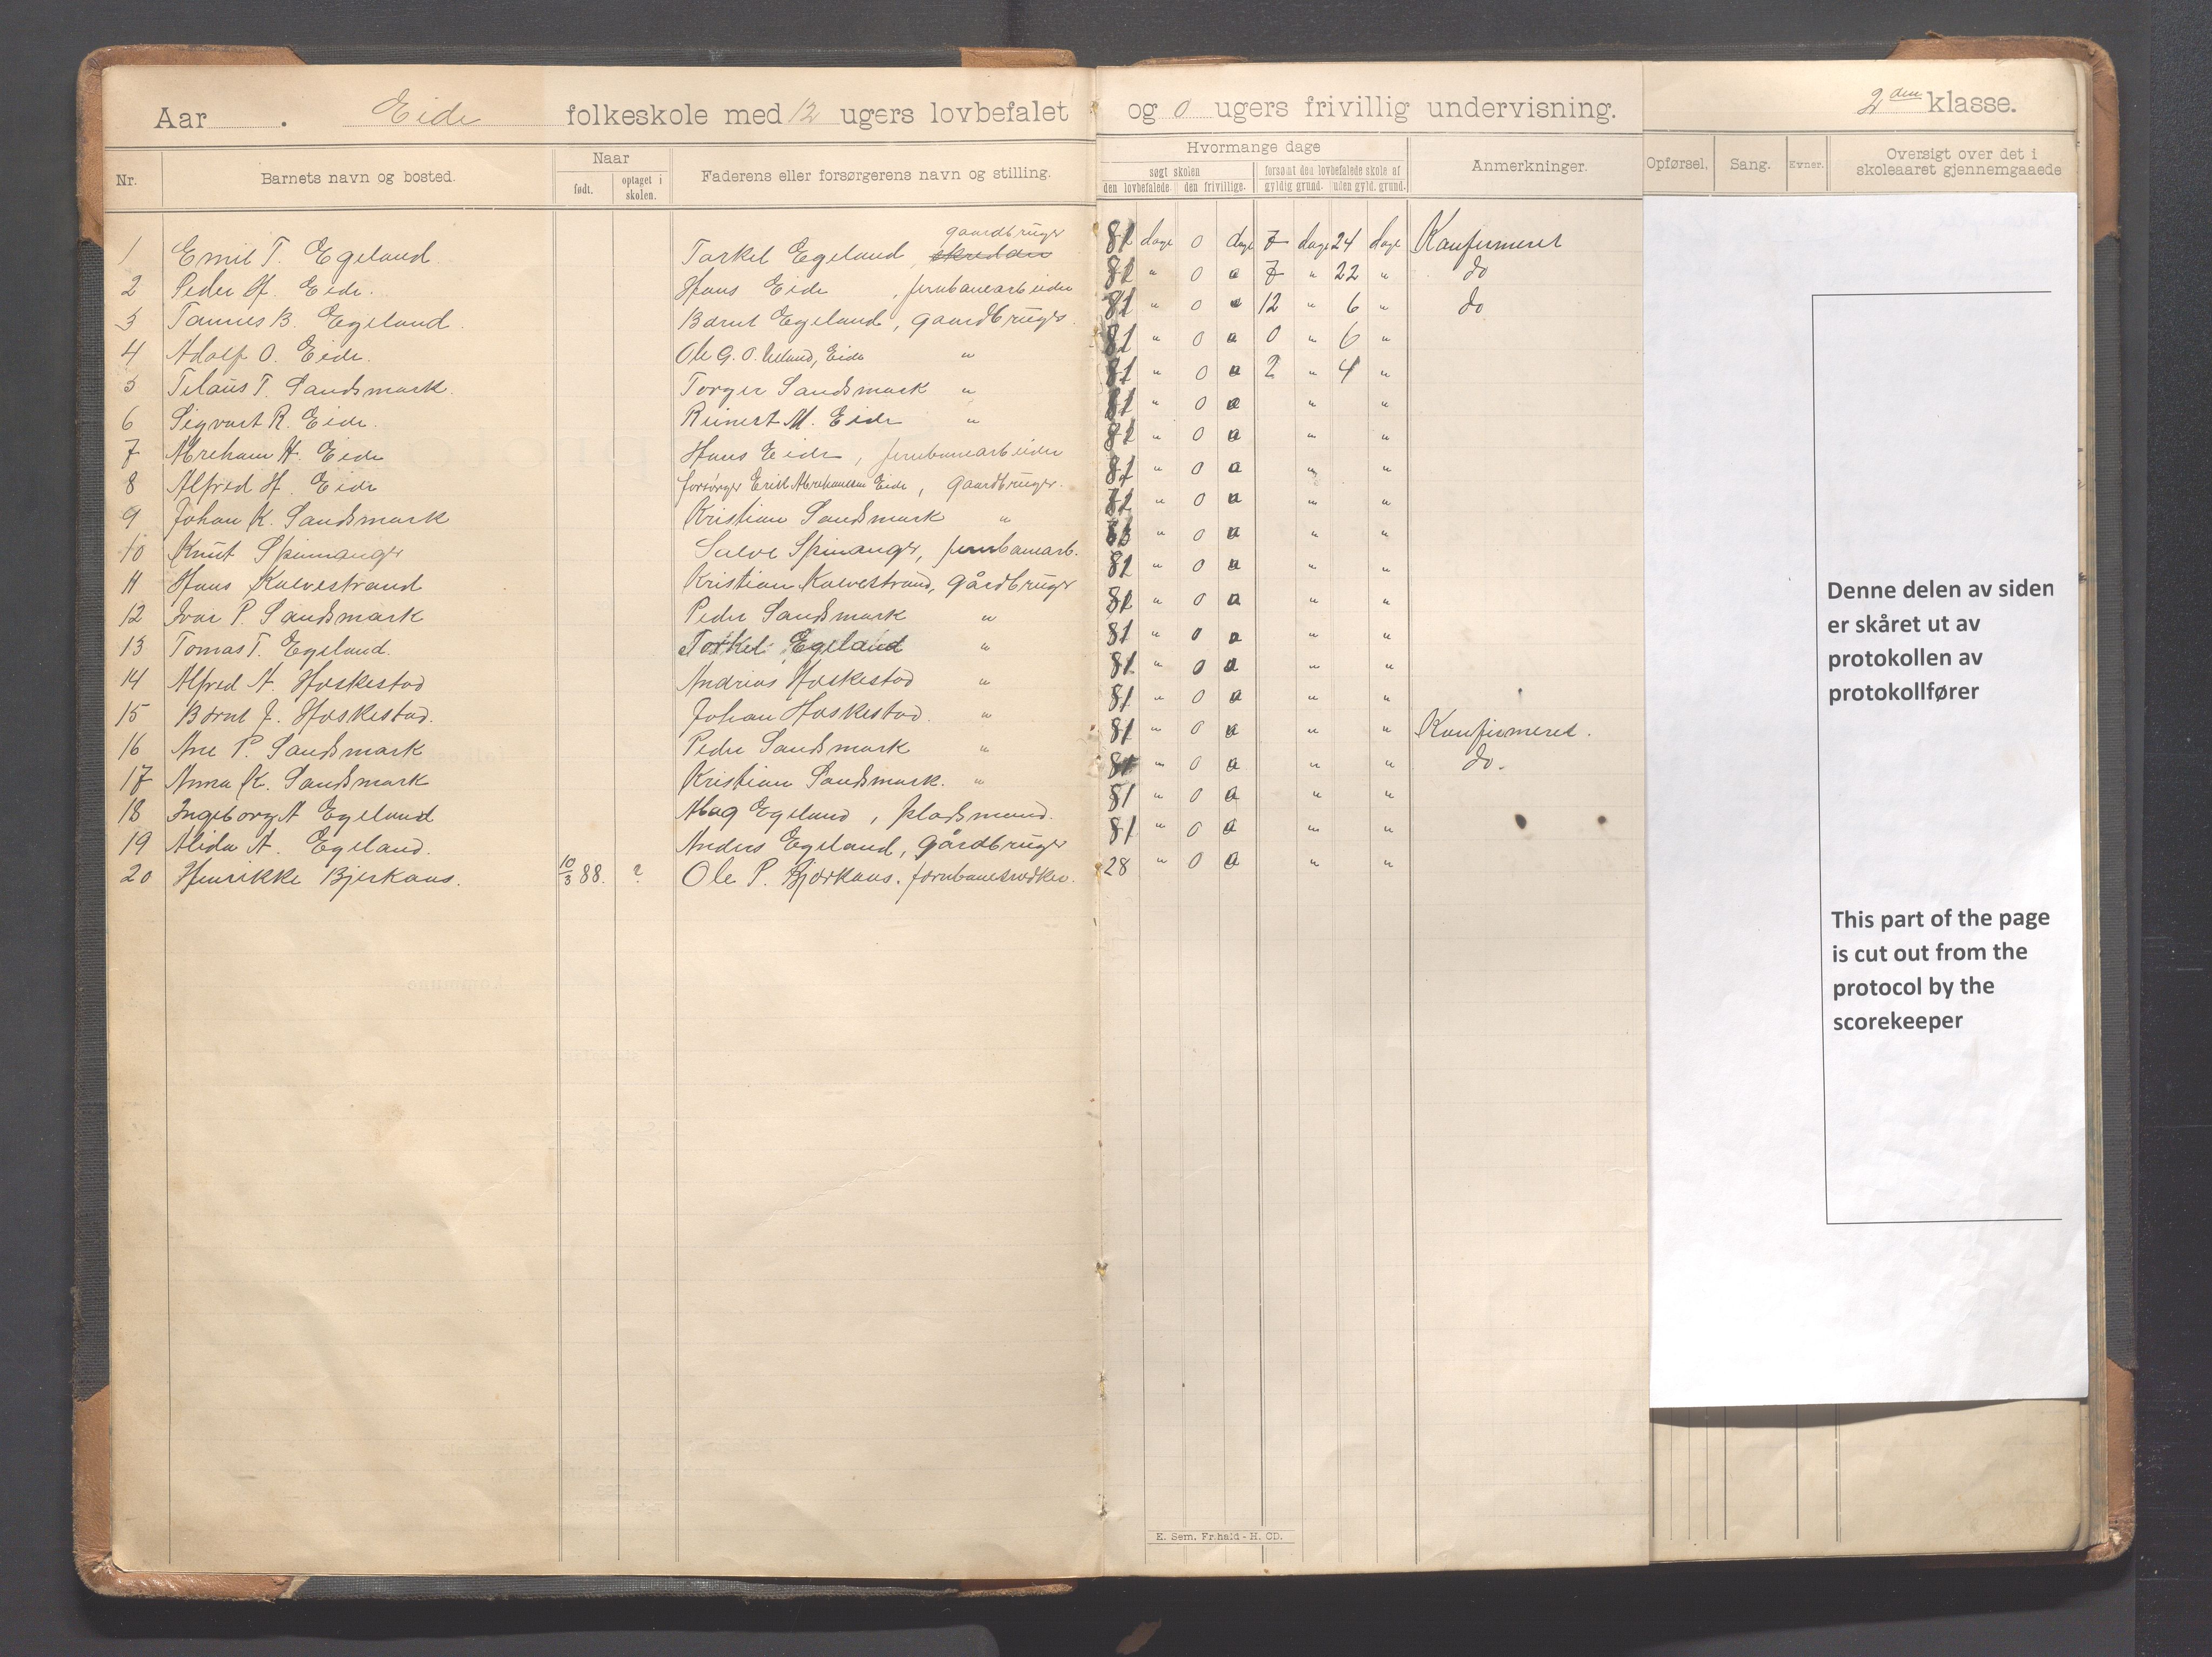 Aar . Eide folkeskole med 12 ugers lovbefalet og 0 ugers frivillig undervisning. 2den klasse.
Nr. Barnets navn og bosted. Naar født. optaget i skolen. Faderens eller forsørgerens navn og stilling. Hvormange dage søgt skolen den lovbefalede. den frivillige. forsømt den lovbefalede skole af gyldig grund. uden gyld. grund. Anmerkninger. Opførsel. Sang. Evner. Oversigt over det i skoleaaret gjennemgaaede
gaardbruger
1 Emil T. Egeland. Torkel Egeland, 81 dage 0 dage 7 dage 24 dage Konfirmeret
2 Peder H. Eide. Hans Eide, jernbanearbeider 81 " 0 " 7 " 22 " do
3 Tønnes B. Egeland. Bernt Egeland, gaardbruger. 81 " 0 " 12 " 6 " do
4 Adolf O. Eide. Ole G. O. Eide " 81 " 0 " 0 " 6 "
5 T. Sandsmark. Torger Sandsmark " 81 " 0 " 2 " 4 "
6 Sigvart R. Eide. Reinert M. Eide " 81 " 0 " " "
7 Abreham H. Eide Hans Eide, jernbanearbeider 81 " 0 " " "
8 Alfred H. Eide forsørger Abrehamsen Eide, gaardbruger. 81 " 0 " " "
9 Johan K. Sandsmark Kristian Sandsmark " " 0 " " "
10 Knut Spinnanger Salve Spinanger, jernbanearb. " 0 " " "
11 Hans Kalvestrand Kristian Kalvestrand, gårdbruger 81 " 0 " " "
12 Ivar P. Sandsmark Peder Sandsmark " 81 " 0 " " "
13 Tomas T. Egeland. Torkel Egeland " 81 " 0 " " "
14 Alfred A. Hoskestad Andreas Hoskestad " 81 " 0 " " "
15 Bernt J. Hoskestad. Johan Hoskestad. " 81 " 0 " " "
16 Ane P. Sandsmark Peder Sandsmark " 81 " 0 " " " Konfirmeret.
17 Anna K. Sandsmark Kristian Sandsmark. " 81 " 0 " " " do.
18 Ingeborg A Egeland Egeland, pladsmand. 81 " 0 " " "
19 Alida A. Egeland. Anders Egeland, gårdbruger 81 " 0 " " "
20 Henrikke Bjerkaas. 10/3 88. ? Ole P. Bjerkaas. 28 " 0 " " "
Denne delen av siden
er skåret ut av
protokollen av
protokollfører
This part of the page
is cut out from the
protocol by the
scorekeeper
E. Sem, Fr.hald - H. CD.